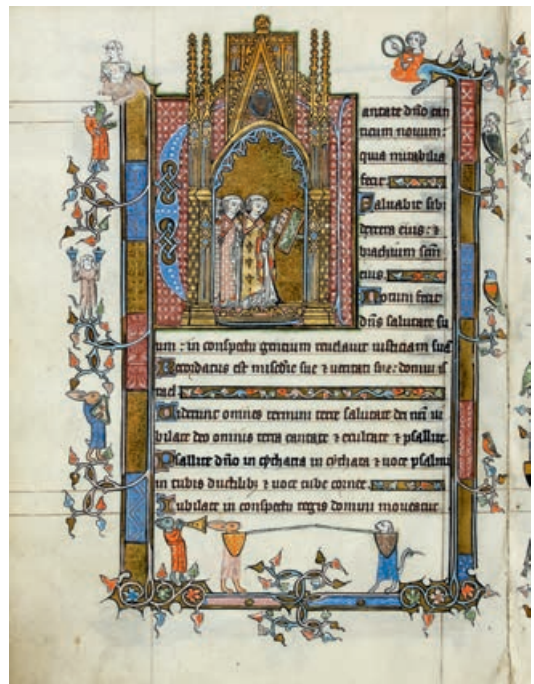 Cantate dño can
ticum nouum:
quia mirabilia
fecit
Saluabit sibi
dextera eius: ⁊
brachium scm̄
eius.
Notum fecit
dñs salutare su
um: in conspectu gencium reuelauit iusticiam suā
Recordatus est misedie sue ⁊ ueritati sue: domui is
rael
Uiderunt omnes termini terre salutare dei nr̄i iu
bilate deo omnis terra cantate ⁊ exultate ⁊ psallite.
Psallite dño in cythara in cythara ⁊ uoce psalmi
in tubis ductilibꝫ ⁊ uoce tube cornee.
Iubilate in conspectu regis domini moueatur